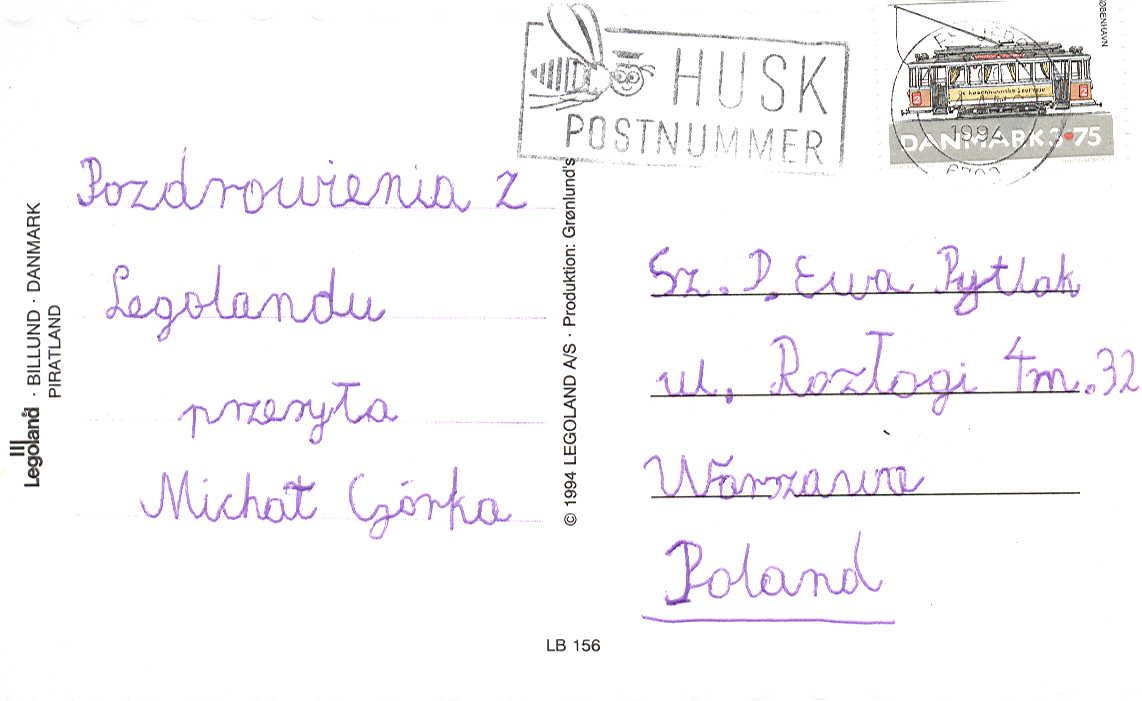 HUSK
POSTNUMMER
KØBENHAVN
DANMARK 3.75
1994
Pozdrowienia z
Legolandu
przesyła
Michał Górka
Sz. P. Ewa Pytlak
ul. Rozłogi 4m.32
Warszawa
Poland
Legoland · BILLUND · DANMARK
PIRATLAND
© 1994 LEGOLAND A/S · Produktion: Grønlund's
LB 156